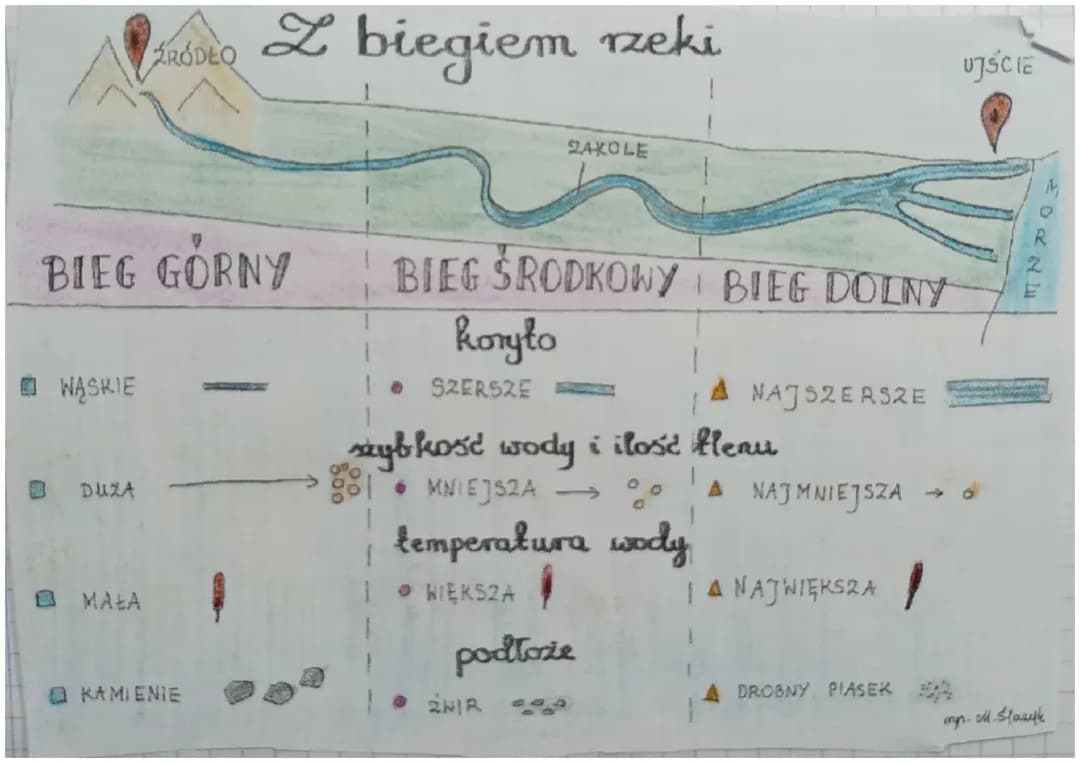 Z biegiem rzeki
ŹRÓDŁO
UJŚCIE
ZAKOLE
MORZE
BIEG GÓRNY
BIEG ŚRODKOWY
BIEG DOLNY
koryto
WĄSKIE
SZERSZE
NAJSZERSZE
szybkość wody i ilość tlenu
DUŻA
MNIEJSZA
NAJMNIEJSZA
temperatura wody
MAŁA
WIĘKSZA
NAJWIĘKSZA
podłoże
KAMIENIE
ŻWIR
DROBNY PIASEK